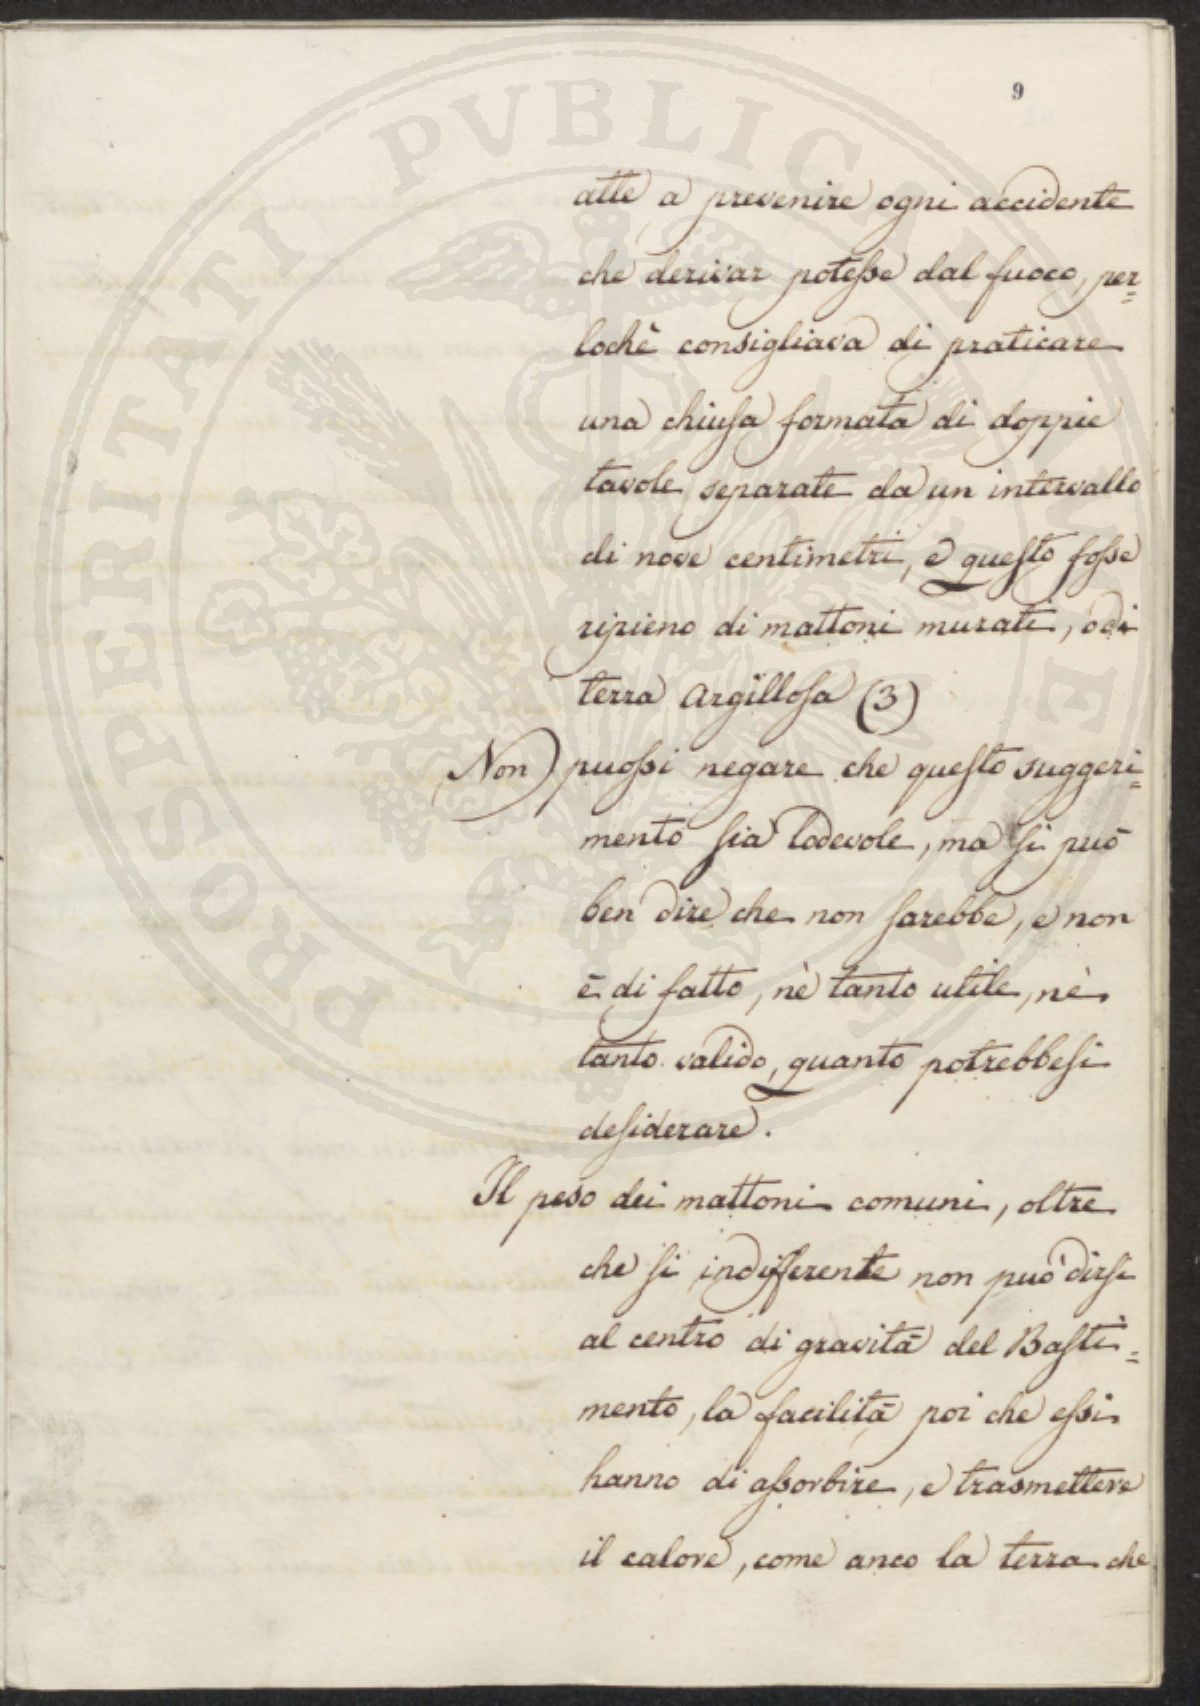 9
atte, a prevenire ogni accidente
che derivar potesse dal fuoco, per=
lochè consigliava di praticare
una chiusa formata di doppie
tavole separate da un intervallo
di nove centimetri, e questo fosse
ripieno di mattoni murati, o di
terra Argillosa (3)
Non puossi negare che questo suggeri=
mento sia lodevole, ma si può
ben dire che non sarebbe, e non
è di fatto, nè tanto utile, nè
tanto valido, quanto potrebbesi
desiderare.
Il peso dei mattoni comuni, oltre
che si indifferente non può dirsi
al centro di gravità del Basti=
mento, la facilità poi che essi
hanno di assorbire, e trasmettere
il calore, come anco la terra che
PROSPERITATI PVBLICAE